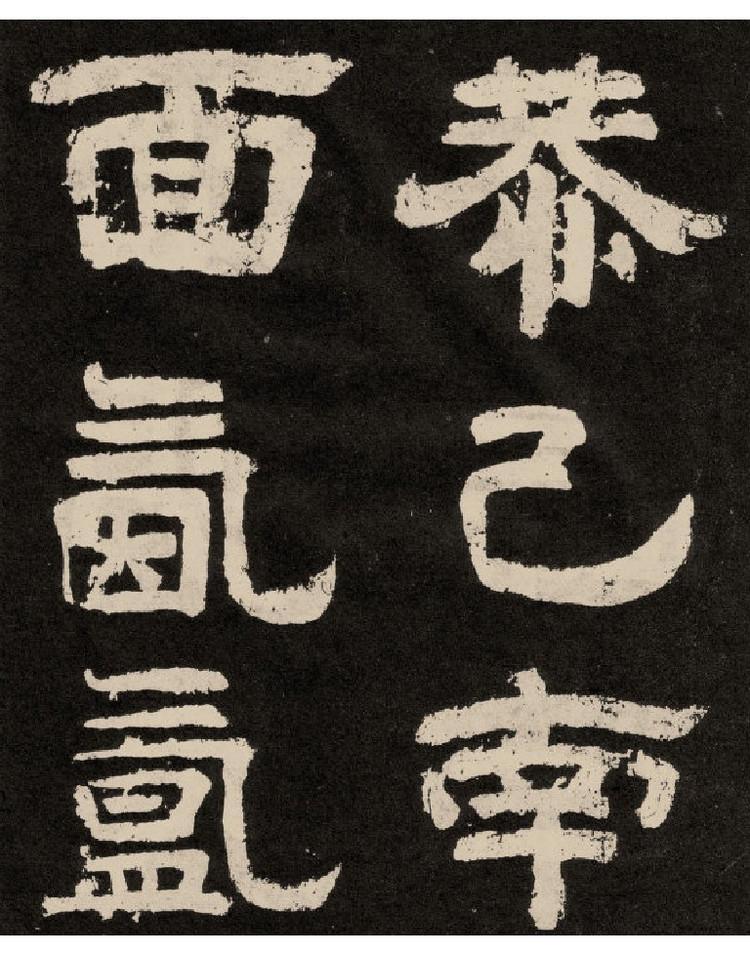 恭己南
面氤氳